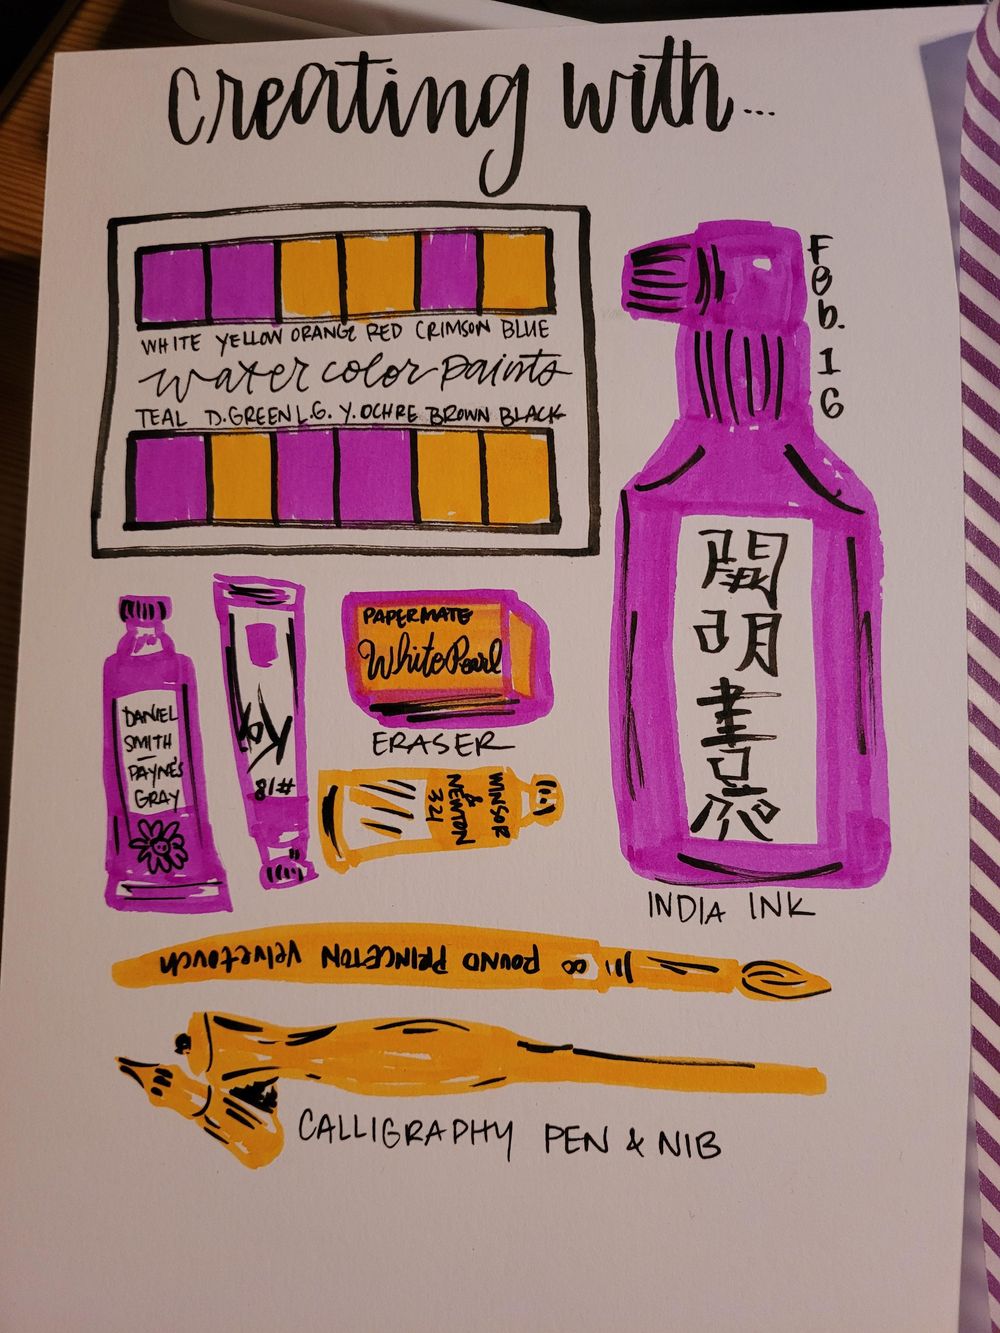 creating with...
WHITE YELLOW ORANGE RED CRIMSON BLUE
watercolor paints
TEAL D.GREEN L.G. Y.OCHRE BROWN BLACK
Feb.
16
開
明
書
INDIA INK
DANIEL
SMITH
PAYNE'S
GRAY
Koi
#18
PAPERMATE
WhitePearl
ERASER
WINSOR
&
NEWTON
321
Velvetouch PRINCETON ROUND 8
CALLIGRAPHY PEN & NIB